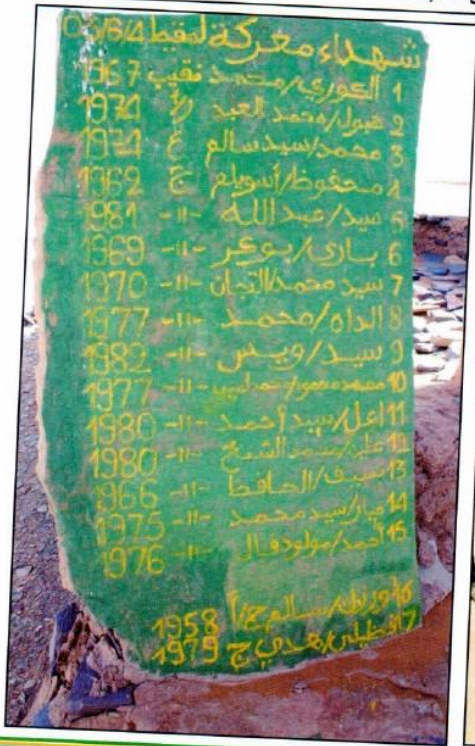 شهداء معركة لمغيطي 05/6/4
1 الكوري/محمد نقيب 1967
2 غبولا/محمد العبد 1974
3 محمد/سيد سالم ع 1974
4 محفوظ/أسويلم ج 1962
5 سيد/عبد الله -اا- 1981
6 بارى/بوبكر -اا- 1969
7 سيد محمد/التجان -اا- 1970
8 الداه/محمد -اا- 1977
9 سيد/ويس -اا- 1982
10 محمد محمود/ -اا- 1977
11 اعل/سيد أحمد -اا- 1980
12 محمد الشيخ -اا- 1980
13 سيف/الحافظ -اا- 1966
14 سيد محمد -اا- 1975
15 أحمد/مولود فال -اا- 1976
16 سالم ج/أ 1958
17 هدي ج 1979